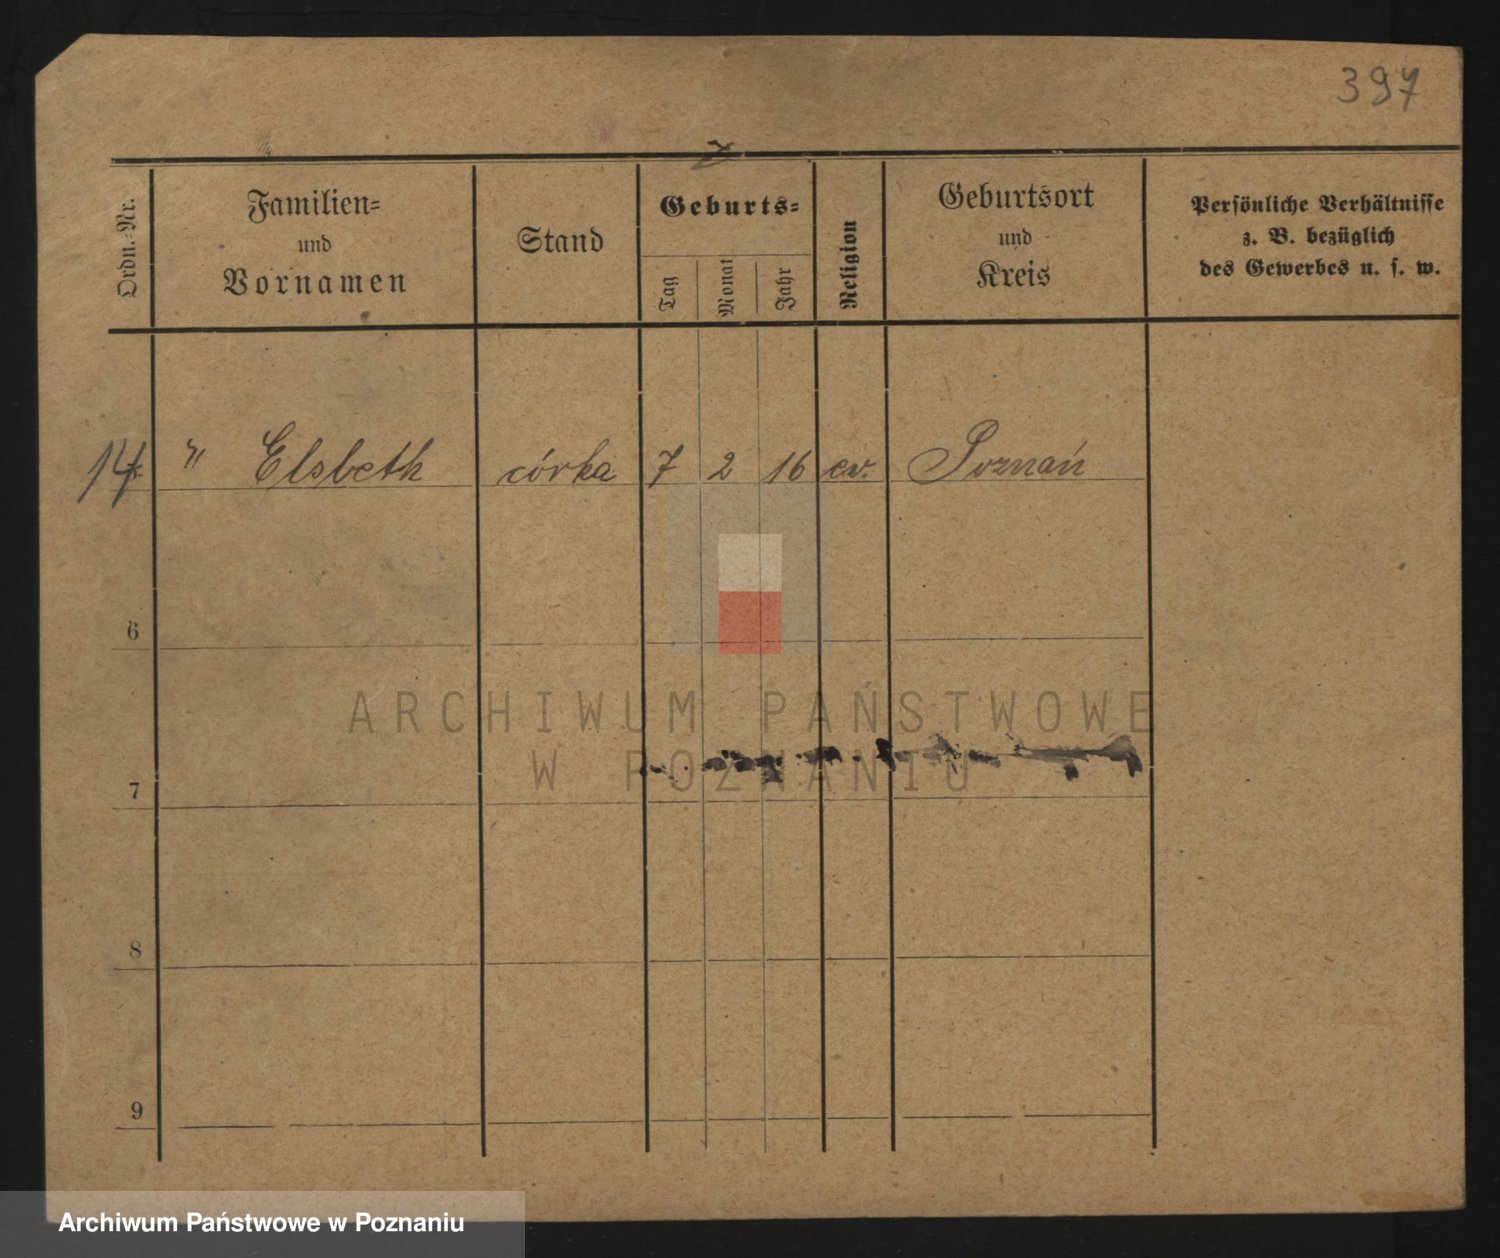 397
Ordn.-Nr.
Familien-
und
Vornamen
Stand
Geburts-
Tag
Monat
Jahr
Religion
Geburtsort
und
Kreis
Persönliche Verhältnisse
z. B. bezüglich
des Gewerbes u. s. w.
14 " Elsbeth córka 7 2 16 ew. Poznań
6
ARCHIWUM PAŃSTWOWE
W POZNANIU
7
8
9
Archiwum Państwowe w Poznaniu